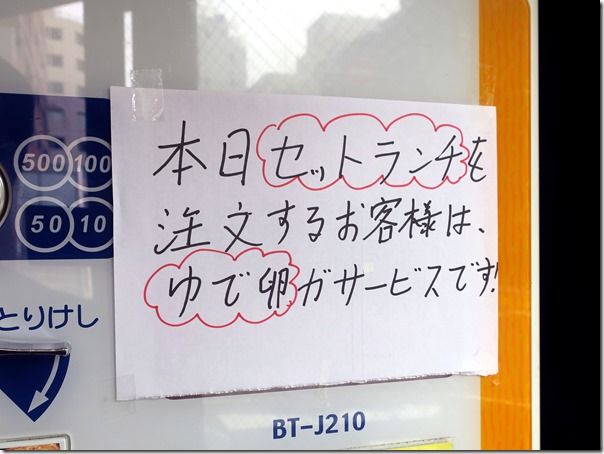 本日セットランチを
注文するお客様は、
ゆで卵がサービスです!
500 100
50 10
とりけし
BT-J210